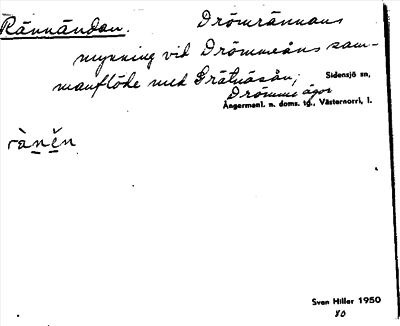 Rännändan. Drömrännans
mynning vid Drömmeåns sam-
manflöde med Grätnäsån; Sidensjö sn,
Drömme ägor
Ångermanl. n. doms. tg., Västernorrl. l.
rànĕn
Sven Hiller 1950
80